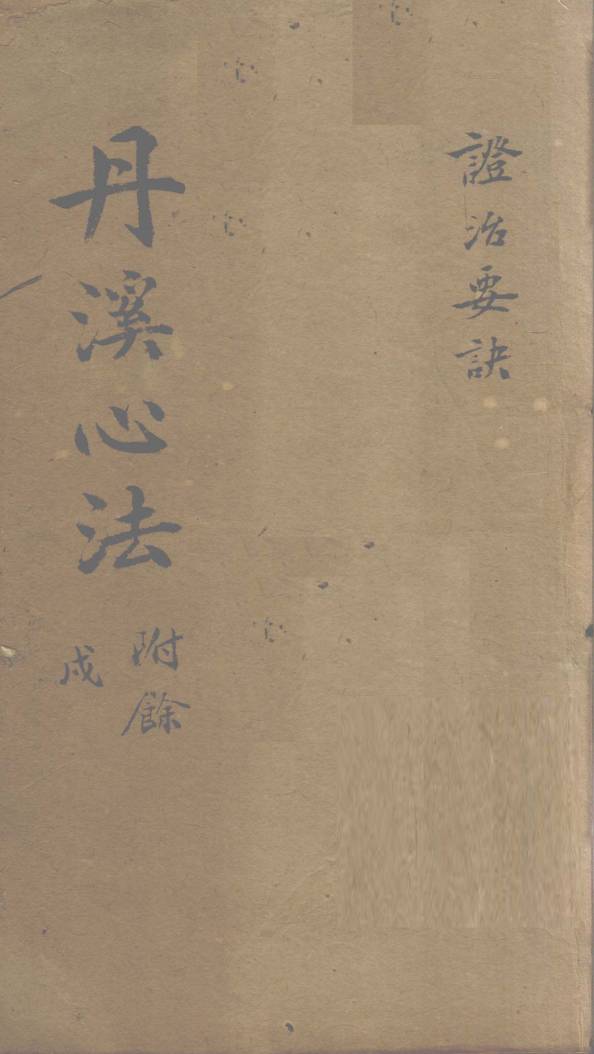 證治要訣
丹溪心法
附餘
戌